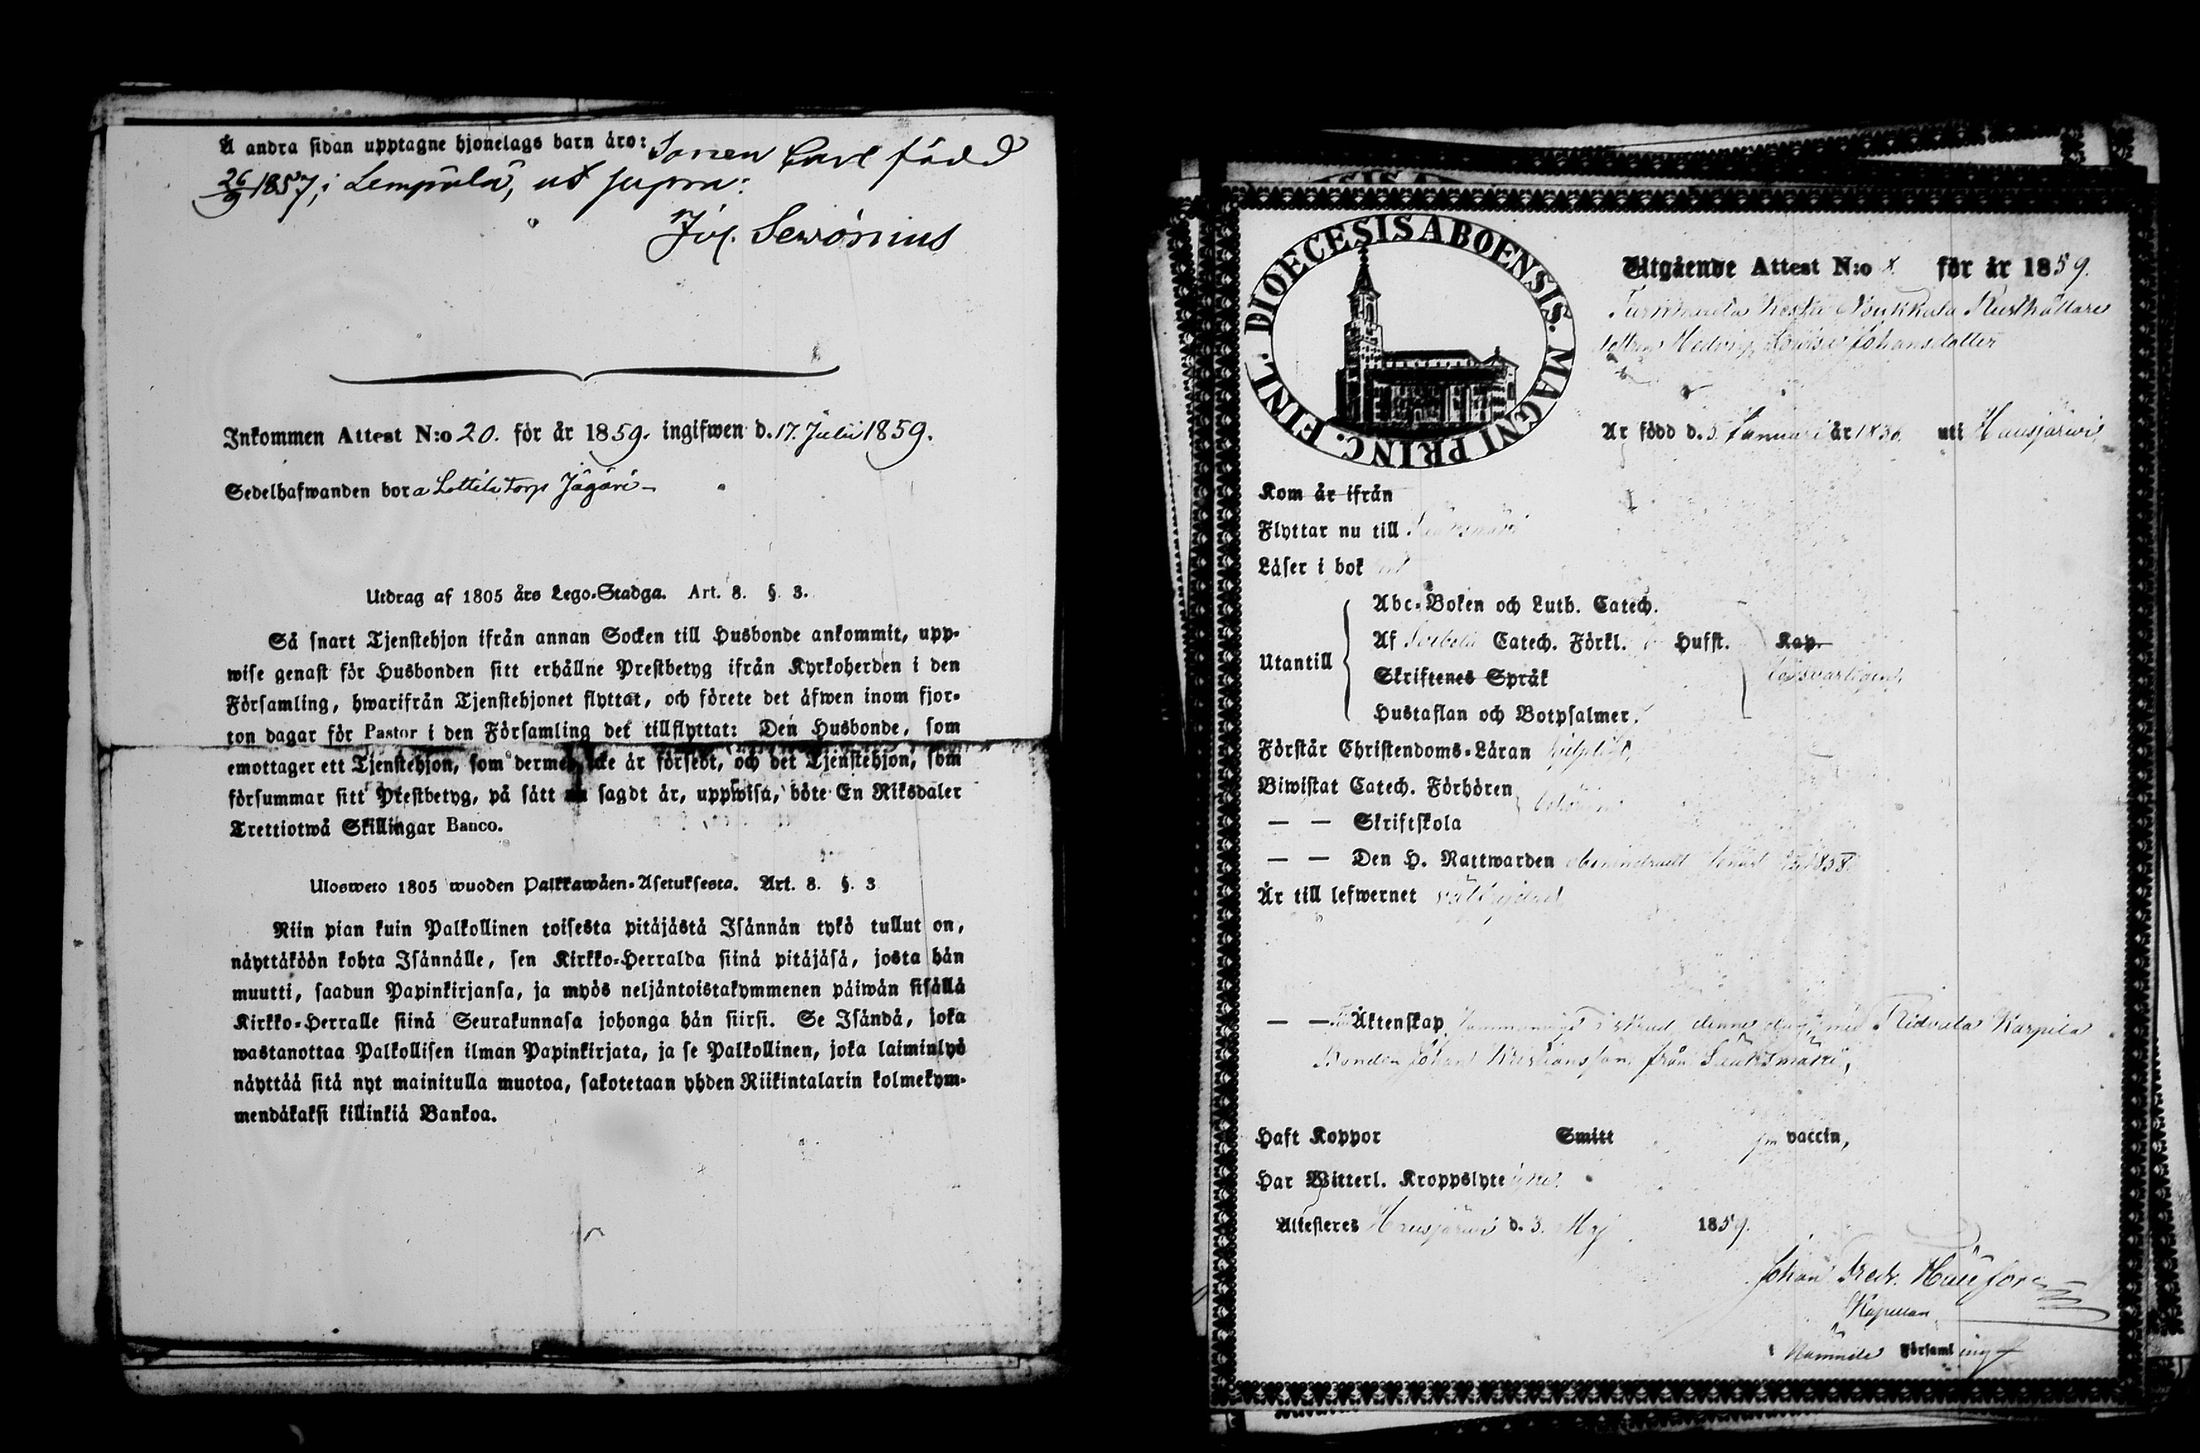 Å andra sidan upptagne hjonelags barn äro: Sonen Carl född
26/9 1857, i Lempälä, ut supra:
Joh. Serónius
Inkommen Attest N:o 20. för år 1859. ingifwen d. 17. Julii 1859.
Sedelhafwanden bor a Lottila torp Jägäri
Utdrag af 1805 års Lego-Stadga. Art. 8. §. 3.
Så snart Tjenstehjon ifrån annan Socken till Husbonde ankommit, upp-
wise genast för Husbonden sitt erhållne Prestbetyg ifrån Kyrkoherden i den
Församling, hwarifrån Tjenstehjonet flyttat, och förete det äfwen inom fjor-
ton dagar för Pastor i den Församling det tillflyttat: Den Husbonde, som
emottager ett Tjenstehjon, som dermed icke är försedt, och det Tjenstehjon, som
försummar sitt Prestbetyg, på sätt sagdt är, uppwisa, böte En Riksdaler
Trettiotwå Skillingar Banco.
Ulosweto 1805 wuoden Palkkawäen-Asetuksesta. Art. 8. §. 3
Niin pian kuin Palkollinen toisesta pitäjästä Isännän tykö tullut on,
näyttäköön kohta Isännälle, sen Kirkko-Herralda siinä pitäjäsä, josta hän
muutti, saadun Papinkirjansa, ja myös neljäntoistakymmenen päiwän sisällä
Kirkko-Herralle siinä Seurakunnasa johonga hän siirsi. Se Isändä, joka
wastanottaa Palkollisen ilman Papinkirjata, ja se Palkollinen, joka laiminlyö
näyttää sitä nyt mainitulla muotoa, sakotetaan yhden Riikintalarin kolmekym-
mendäkaksi killinkiä Bankoa.
DIOECESIS ABOENSIS. MAGNI PRINC. FINL.
Utgående Attest N:o för år 1859.
Noukkala Rusthållare
dottren Hedvig Lovisa Johansdotter
Är född d. 5. Januari år 1836. uti Hausjärwi,
Kom år ifrån
Flyttar nu till Sääksmäki
Läser i bok
Abc-Boken och Luth. Catech.
Af Svebelii Catech. Förkl. Husst. Kap.
Utantill
Skriftenes Språk
försvarligen,
Hustaflan och Botpsalmer.
Förstår Christendoms-Läran hjelpligt,
Biwistat Catech. Förhören
— — Skriftskola
— — Den H. Nattwarden 1858.
Är till lefwernet välfrejdad
— — Äktenskap denne dag med Ridvala Karpila
Bonden Johan Kristiansson från Sääksmäki,
Haft Koppor Smitt vaccin,
Har Witterl. Kroppslyte
Attesteres Hausjärwi d. 3. Maj 1859.
Johan Fredr.
Kapellan
i Församling